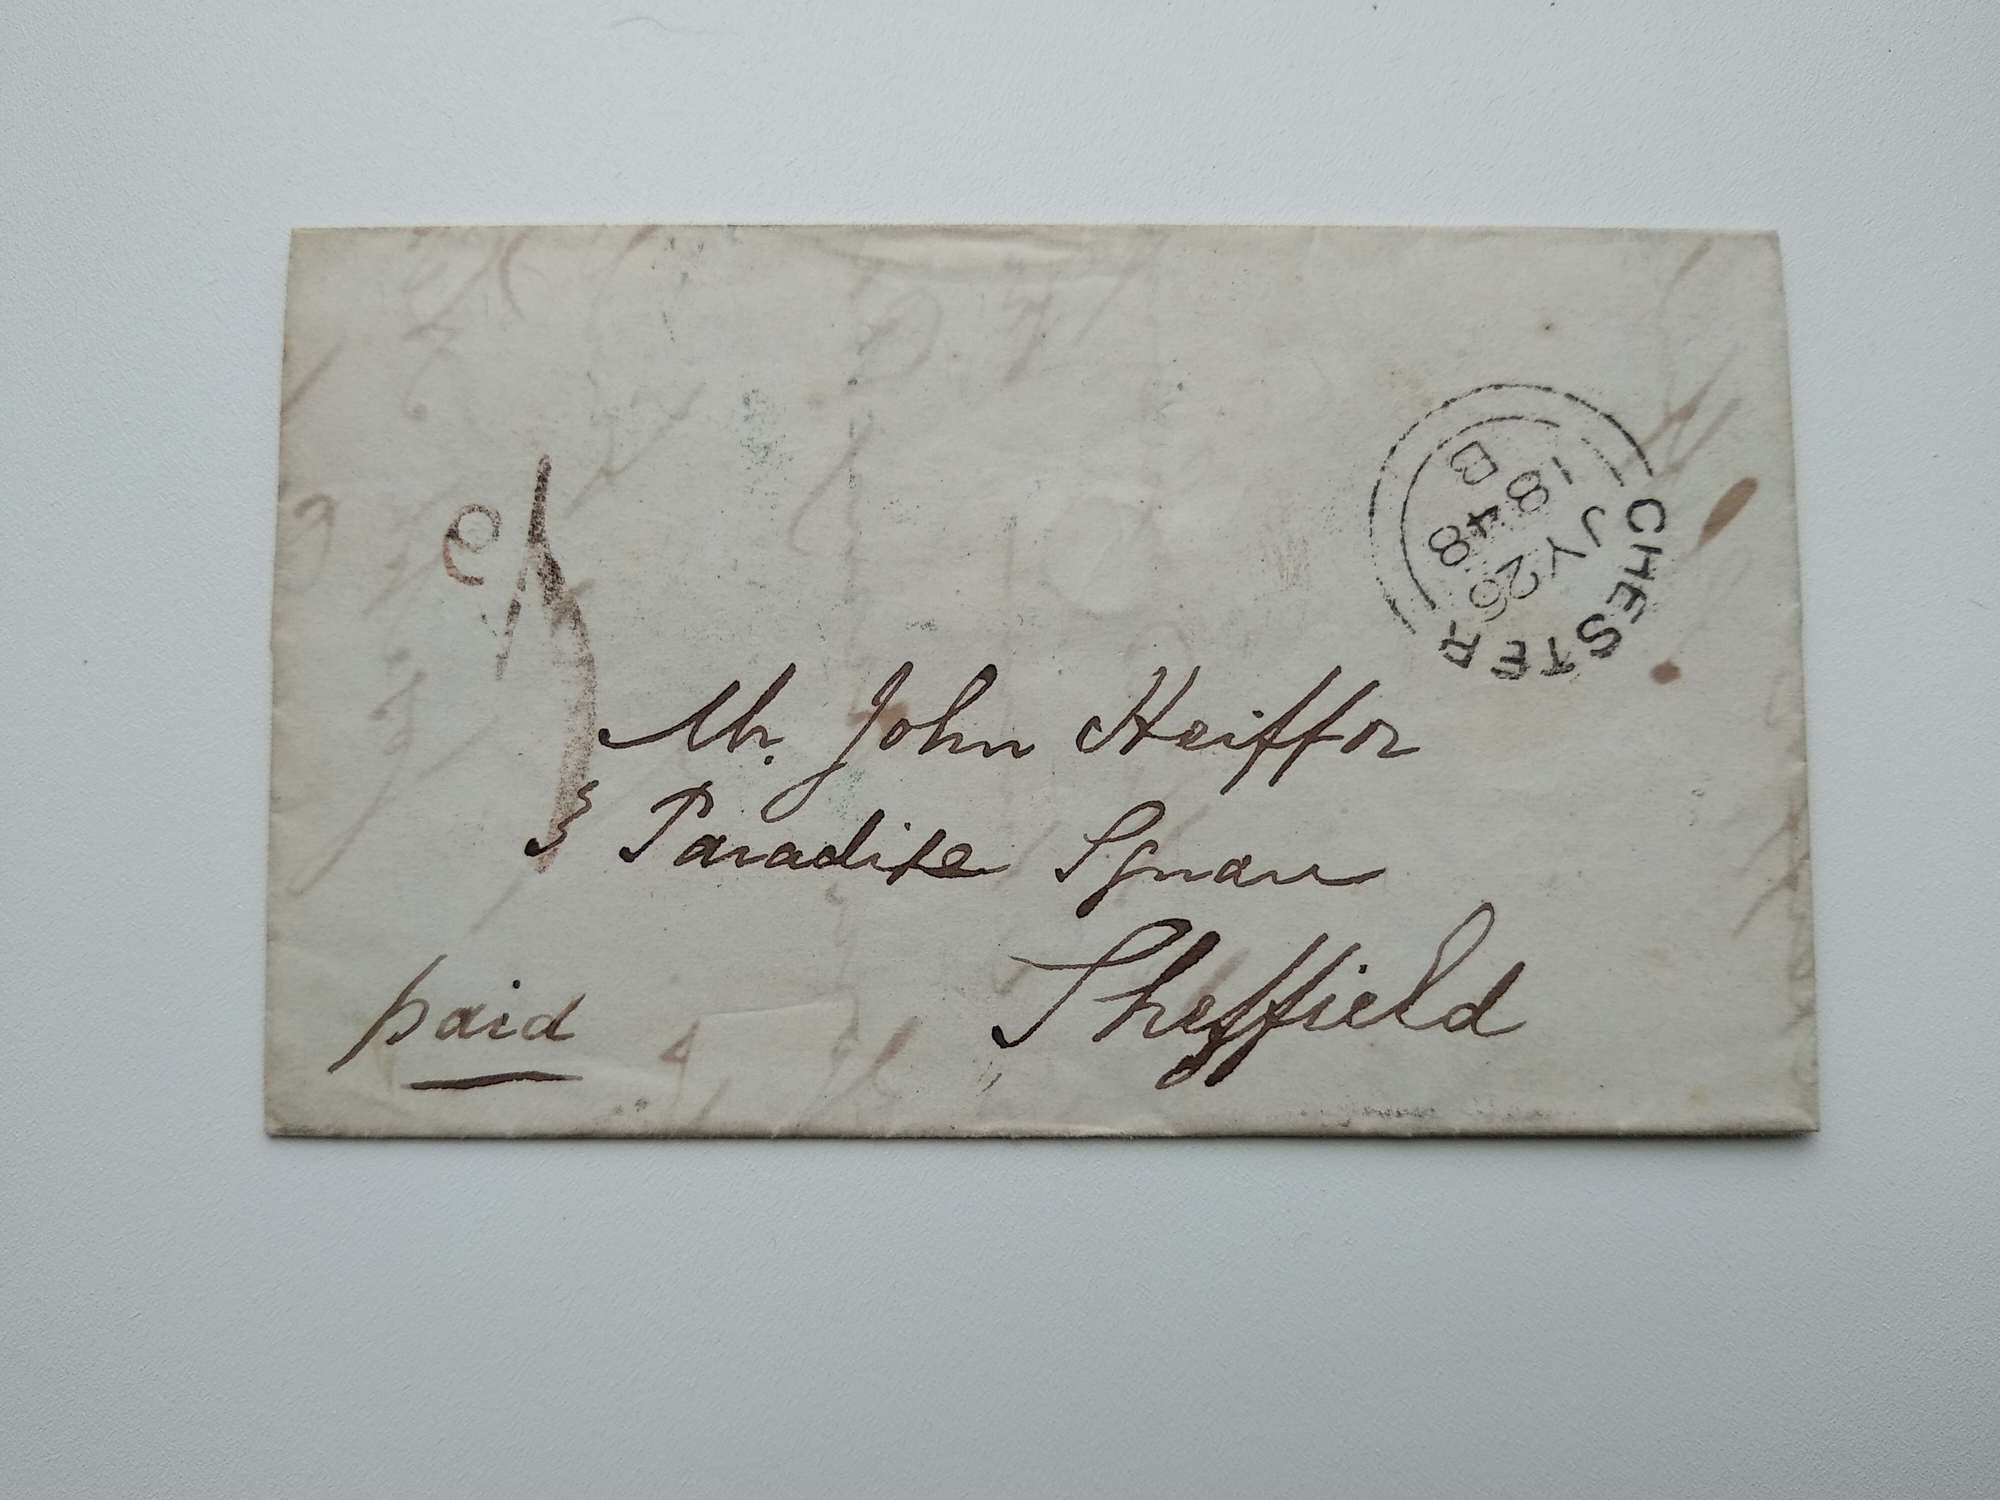 CHESTER
B
JY26
1848
Mr. John Heiffor
3 Paradise Square
Sheffield
paid